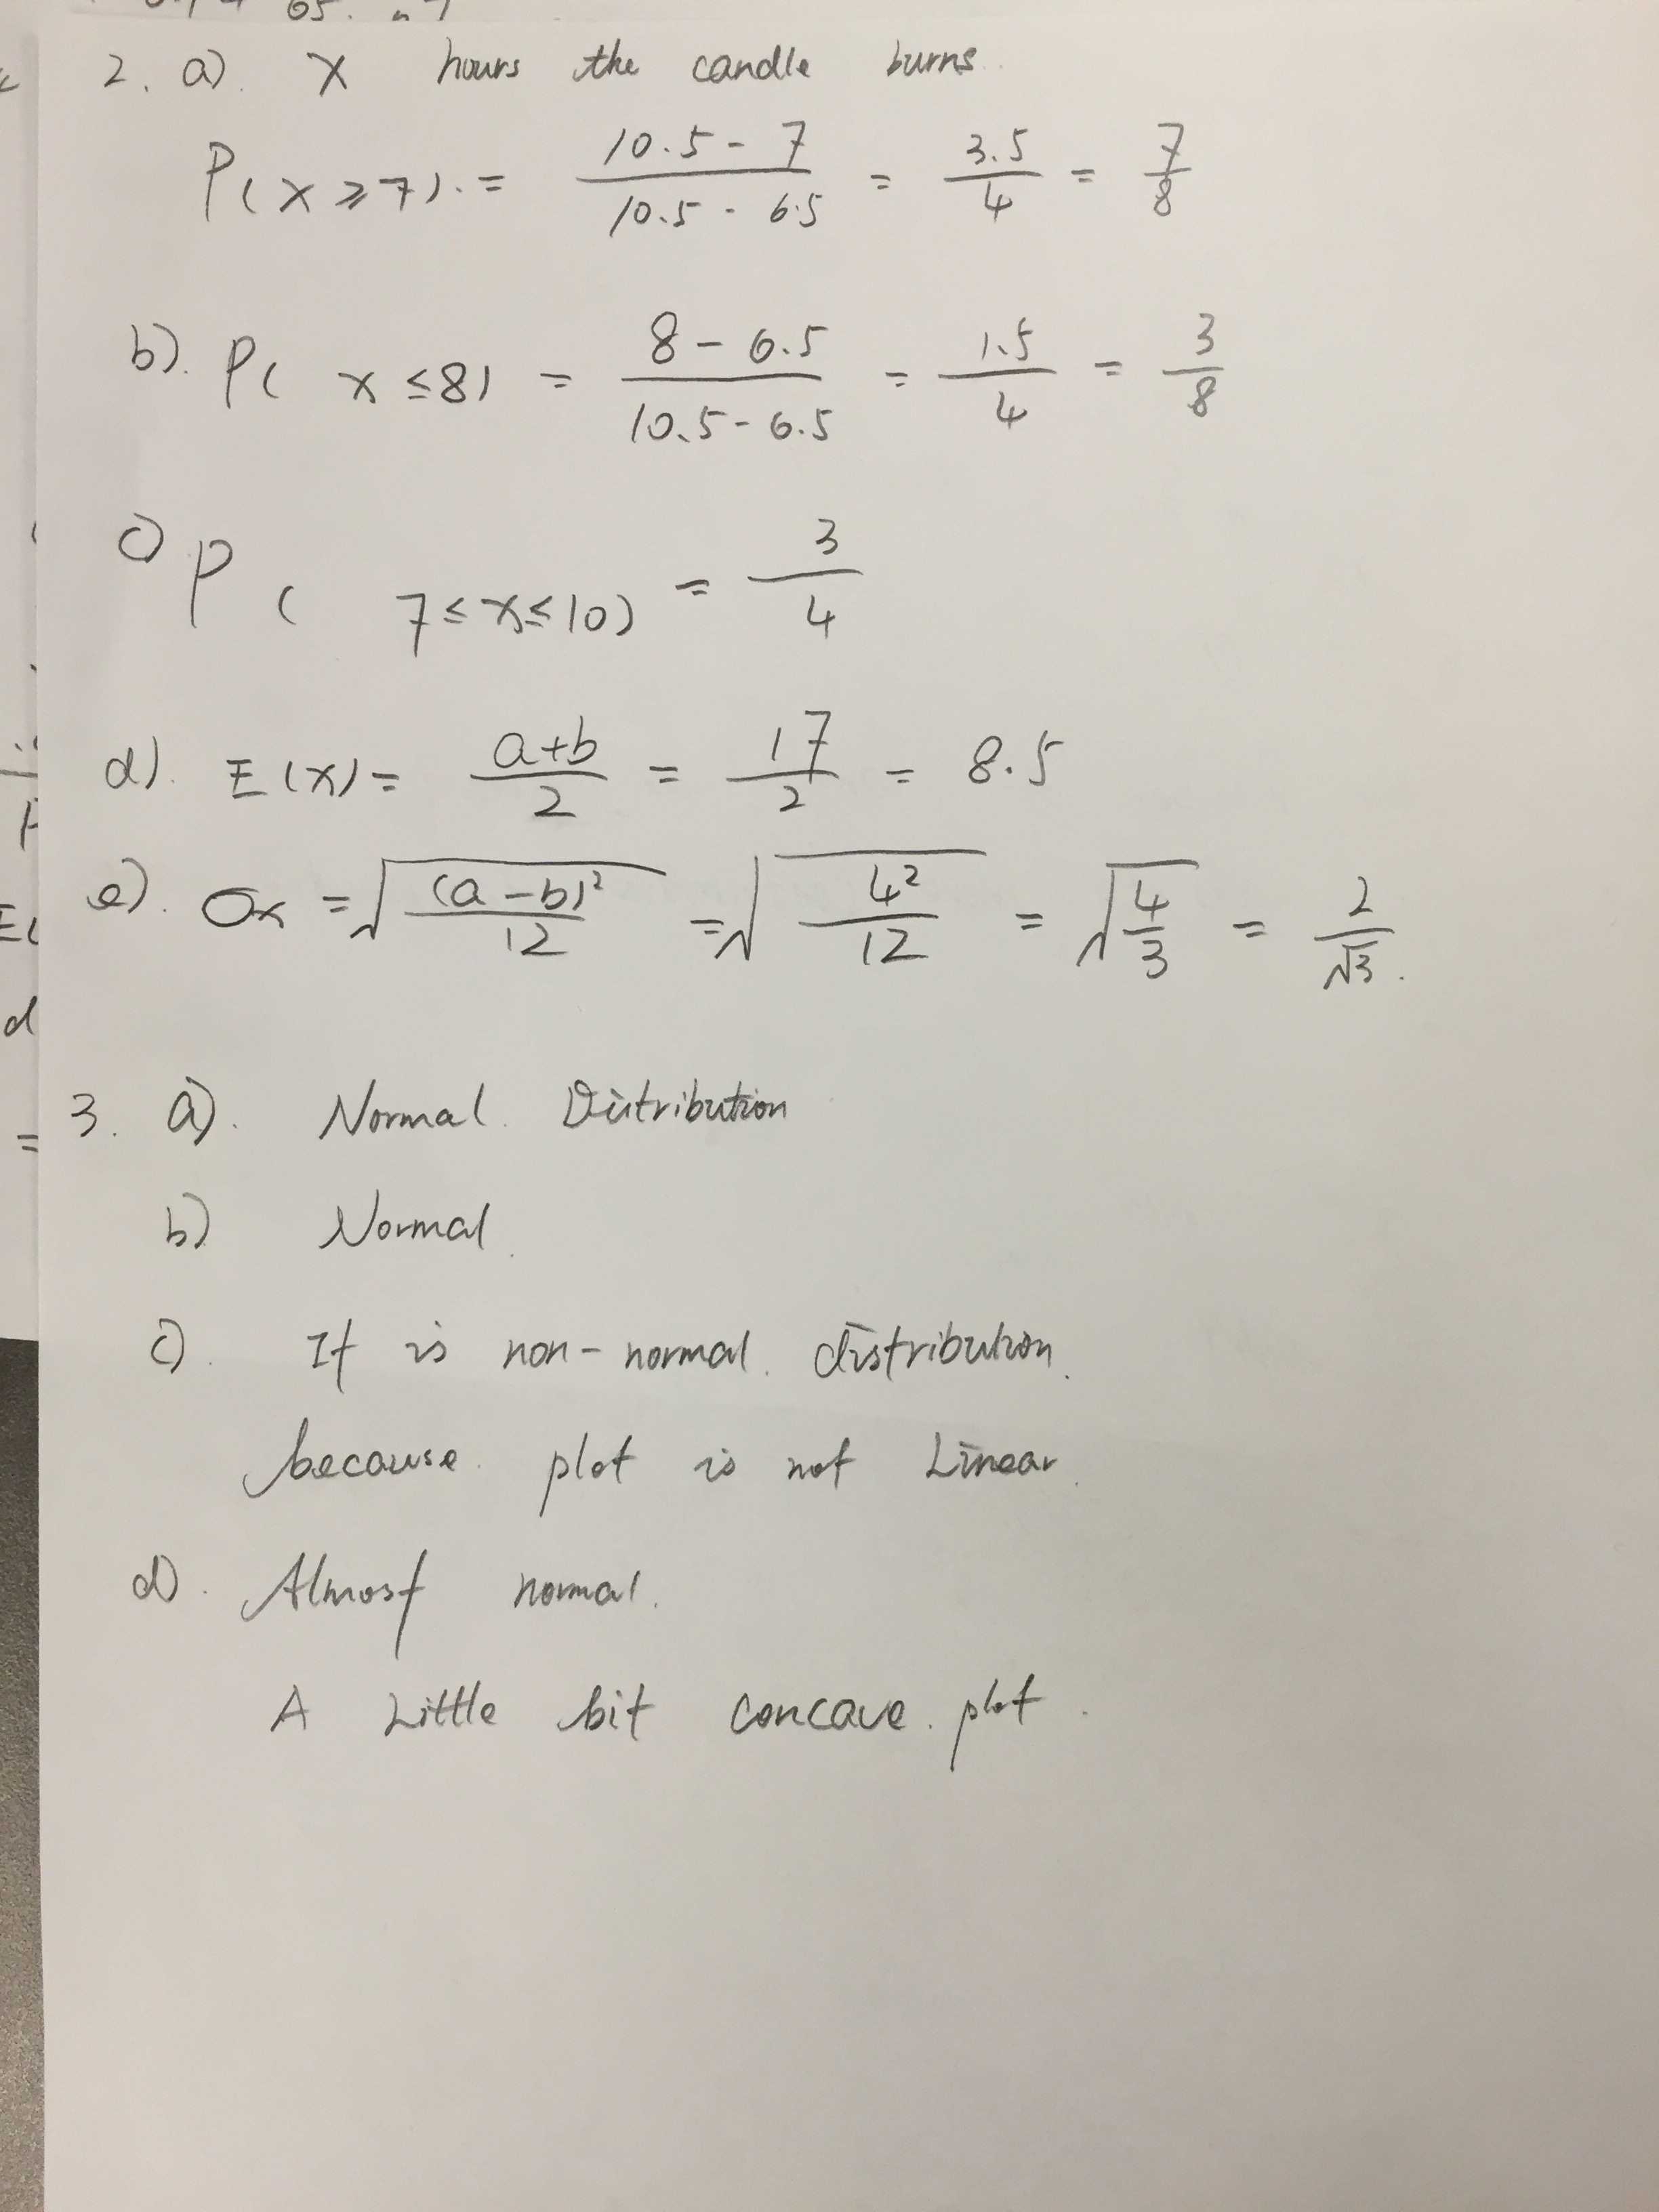 2. a). X hours the candle burns.
P(X ≥ 7). = (10.5 - 7)/(10.5 - 6.5) = 3.5/4 = 7/8
b). P( X ≤ 8) = (8 - 6.5)/(10.5 - 6.5) = 1.5/4 = 3/8
c) P( 7 ≤ X ≤ 10) = 3/4
d). E(X) = (a+b)/2 = 17/2 = 8.5
e). σx = √((a-b)²/12) = √(4²/12) = √(4/3) = 2/√3.
3. a). Normal. Distribution
b) Normal.
c). It is non-normal. distribution.
because. plot is not Linear.
d). Almost normal.
A Little bit concave. plot.